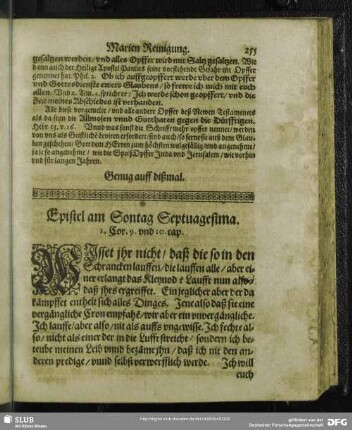 Marien Reinigung. 255
gesaltzen werden / vnd alles Opffer wird mit Saltz gesaltzen. Wie
dann auch der Heilige Apostel Paulus seine vorstehende Gefahr ein Opffer
genennet hat. Phil. 2. Ob ich auffgeopffert werde vber dem Opffer
vnd Gottesdienste ewers Glaubens / so frewe ich mich mit euch
allen. Vnd 2. Tim. 4. spricht er: Ich werde schon geopffert / vnd die
Zeit meines Abschiedes ist verhanden.
Alle diese vorgemelte / vnd alle andere Opffer deß Newen Testamentes
als da seyn die Allmosen vnnd Gutthaten gegen die Dürfftigen.
Hebr. 13. v. 16. Vnnd was sonst die Schrifft mehr opffer nennet / werden
von vns als Geistliche
ben geschehen: Gott dem HErren zum höchsten wolgefällig vnd angenehme /
ja so angenehme / wie die Opffer Juda vnd Jerusalem / wie vorhin
vnd für langen Jahren.
Genug auff dißmal.
Epistel am Sontag Septuagesima.
1. Cor. 9. vnd 10. cap.
WIsset jhr nicht / daß die so in den
Schrancken lauffen / die lauffen alle / aber ei-
ner erlangt das Kleynod: Laufft nun also /
daß jhrs ergreiffet. Ein jeglicher aber der da
kämpffet enthelt sich alles Dinges. Jene also daß sie eine
vergängliche Cron empfahē / wir aber ein vnvergängliche.
Ich lauffe / aber also / nit als auffs vngewisse. Ich fechte al-
so / nicht als einer der in die Lufft streicht / sondern ich be-
teube meinen Leib vnnd bezäme jhn / daß ich nit den an-
deren predige / vnnd selbst verwerfflich werde. Ich will
euch
SLUB
Wir führen Wissen.
gefördert von der
Deutschen Forschungsgemeinschaft
DFG